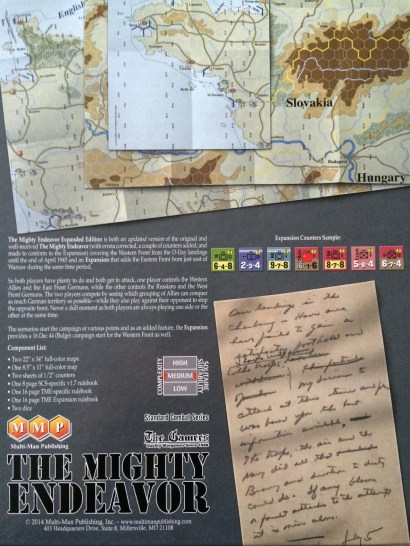 English
Slovakia
Budapest
Hungary
The Mighty Endeavor Expanded Edition is both an updated version of the original and
well-received The Mighty Endeavor (with errata corrected, a couple of counters added, and
made to conform to the Expansion) covering the Western Front from the D-Day landings
until the end of April 1945 and an Expansion that adds the Eastern Front from just east of
Warsaw during the same time period.
So both players have plenty to do and both get to attack, one player controls the Western
Allies and the East Front Germans, while the other controls the Russians and the West
Front Germans. The two players compete by seeing which grouping of Allies can conquer
as much German territory as possible—while they also play against their opponent to stop
the opposite front. Never a dull moment as both players are always playing one side or the
other at the same time.
The scenarios start the campaign at various points and as an added feature, the Expansion
provides a 16 Dec 44 (Bulge) campaign start for the Western Front as well.
Component List:
• Two 22" x 34" full-color maps
• One 8.5" x 11" full-color map
• Two sheets of 1/2" counters
• One 8 page SCS-specific v1.7 rulebook
• One 16 page TME-specific rulebook
• One 16 page TME Expansion rulebook
• Two dice
Expansion Counters Sample:
6-4-8
2-3-4
9-7-8
8-7-8
5-4-4
COMPLEXITY
HIGH
MEDIUM
LOW
SOLITAIRE
SUITABILITY
Standard Combat Series
The Gamers
MMP
Multi-Man Publishing
THE MIGHTY
ENDEAVOR
© 2014 Multi-Man Publishing, Inc. - www.multimanpublishing.com
403 Headquarters Drive, Suite 8, Millersville, MD 21108
Our landings in the
Cherbourg - Havre area
have failed to gain a
satisfactory foothold and
troops
My decision to
attack at this time and place
was based upon the best
information available.
The troops, the air and the
Navy did all that
Bravery and devotion to duty
could do. If any blame
or fault attaches to the attempt
it is mine alone.
July 5